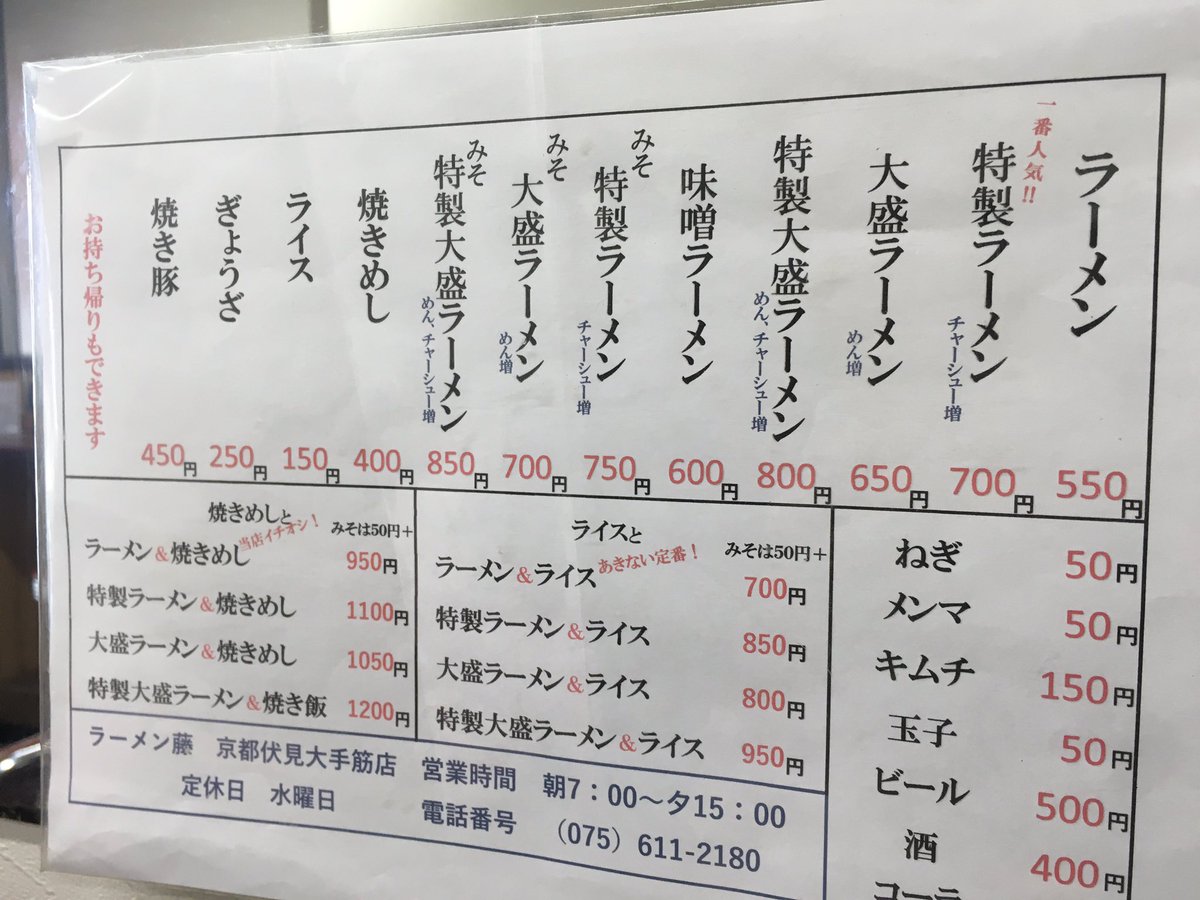 ラーメン 550円
一番人気!!
特製ラーメン チャーシュー増 700円
大盛ラーメン めん増 650円
特製大盛ラーメン めん、チャーシュー増 800円
味噌ラーメン 600円
みそ特製ラーメン チャーシュー増 750円
みそ大盛ラーメン めん増 700円
みそ特製大盛ラーメン めん、チャーシュー増 850円
焼きめし 400円
ライス 150円
ぎょうざ 250円
焼き豚 450円
お持ち帰りもできます
焼きめしと 当店イチオシ! みそは50円+
ラーメン&焼きめし 950円
特製ラーメン&焼きめし 1100円
大盛ラーメン&焼きめし 1050円
特製大盛ラーメン&焼き飯 1200円
ライスと あきない定番! みそは50円+
ラーメン&ライス 700円
特製ラーメン&ライス 850円
大盛ラーメン&ライス 800円
特製大盛ラーメン&ライス 950円
ねぎ 50円
メンマ 50円
キムチ 150円
玉子 50円
ビール 500円
酒 400円
コーラ
ラーメン藤 京都伏見大手筋店 営業時間 朝7:00～夕15:00
定休日 水曜日 電話番号 (075) 611-2180